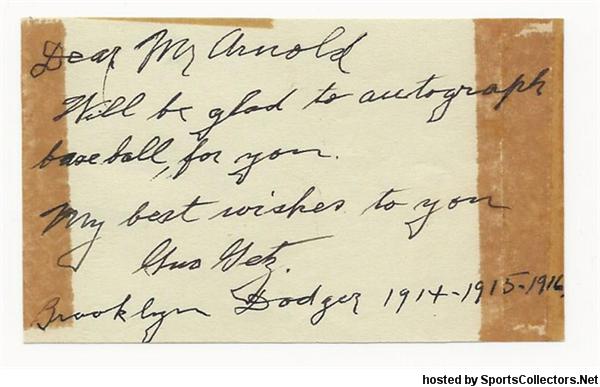 Dear Mr Arnold
Will be glad to autograph
baseball, for you.
My best wishes to you
Gus Getz.
Brooklyn Dodger 1914-1915-1916
hosted by SportsCollectors.Net